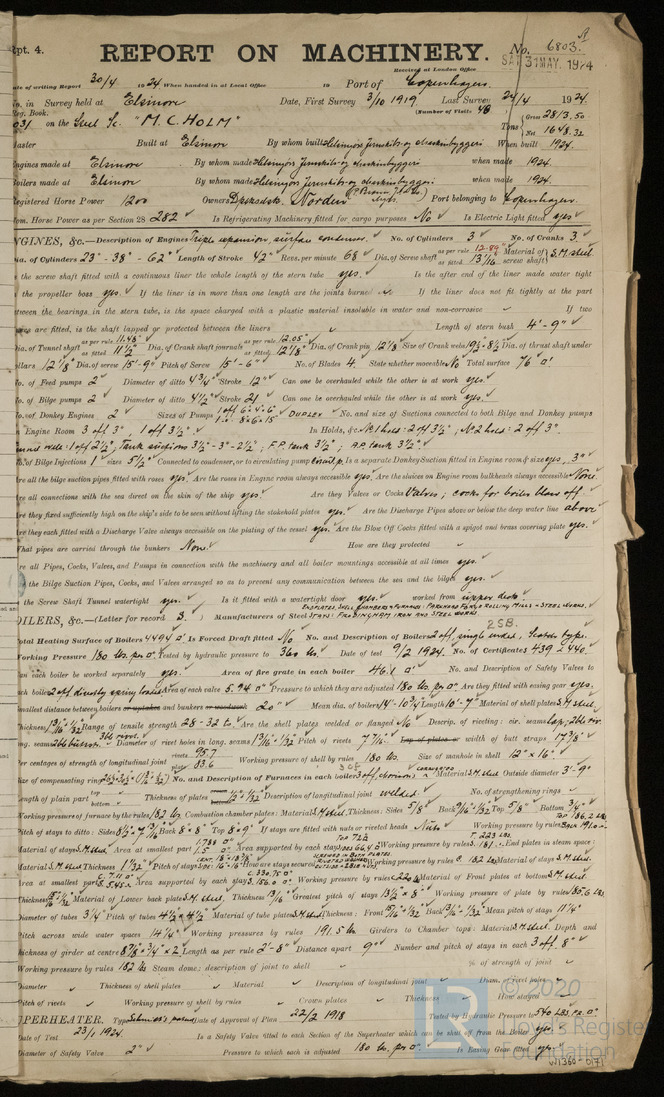 Rpt. 4.
REPORT ON MACHINERY.
No. 6803
SAT 31 MAY. 1924
Received at London Office
Date of writing Report 30/4 1924 When handed in at Local Office 19 Port of Copenhagen.
No. in Survey held at Elsinore Date, First Survey 3/10 1919 Last Survey 24/4 1924.
Reg. Book. (Number of Visits 48
on the Steel Sc. "M. C. HOLM" Tons Gross 2813.50 Net 1648.32
Master Built at Elsinore By whom built Helsingørs Jernskibs- og Maskinbyggeri When built 1924.
Engines made at Elsinore By whom made Helsingørs Jernskibs- og Maskinbyggeri when made 1924.
Boilers made at Elsinore By whom made Helsingørs Jernskibs- og Maskinbyggeri when made 1924.
Registered Horse Power 1200 Owners Dampskibs. Norden Port belonging to Copenhagen.
Nom. Horse Power as per Section 28 282 Is Refrigerating Machinery fitted for cargo purposes No Is Electric Light fitted yes
ENGINES, &c.—Description of Engines Triple expansion surface condenser. No. of Cylinders 3 No. of Cranks 3.
Dia. of Cylinders 23" - 38" - 62" Length of Stroke 42" Revs. per minute 68 Dia. of Screw shaft as per rule 12.99" as fitted 13 1/16" Material of screw shaft S.M. steel.
Is the screw shaft fitted with a continuous liner the whole length of the stern tube yes. Is the after end of the liner made water tight
in the propeller boss yes. If the liner is in more than one length are the joints burned If the liner does not fit tightly at the part
between the bearings in the stern tube, is the space charged with a plastic material insoluble in water and non-corrosive If two
liners are fitted, is the shaft lapped or protected between the liners Length of stern bush 4'-9"
Dia. of Tunnel shaft as per rule 11.48" as fitted 11 1/2" Dia. of Crank shaft journals as per rule 12.05" as fitted 12 1/8" Dia. of Crank pin 12 1/8 Size of Crank webs 19 1/2 x 8 1/2 Dia. of thrust shaft under
collars 12 1/8" Dia. of screw 15'-9" Pitch of Screw 15'-6" No. of Blades 4. State whether moveable No Total surface 76
No. of Feed pumps 2 Diameter of ditto 4 3/4" Stroke 12" Can one be overhauled while the other is at work yes.
No. of Bilge pumps 2 Diameter of ditto 4 1/2" Stroke 21 Can one be overhauled while the other is at work yes.
No. of Donkey Engines 2 Sizes of Pumps DUPLEX No. and size of Suctions connected to both Bilge and Donkey pumps
In Engine Room 3 off 3" 1 off 3 1/2" In Holds, &c. No 1 hold - 2 off 3 1/2"; No 2 hold - 2 off 3".
Tunnel well: 1 off 2 1/2", Tank suctions 3 1/2" - 3" - 2 1/2"; F.P. tank 3 1/2"; A.P. tank 3 1/2"
No. of Bilge Injections 1 sizes 5 1/2" Connected to condenser, or to circulating pump Is a separate Donkey Suction fitted in Engine room & size yes, 3"
Are all the bilge suction pipes fitted with roses yes. Are the roses in Engine room always accessible yes. Are the sluices on Engine room bulkheads always accessible None.
Are all connections with the sea direct on the skin of the ship yes. Are they Valves or Cocks Valves; cocks for boiler blow off.
Are they fixed sufficiently high on the ship's side to be seen without lifting the stokehold plates yes. Are the Discharge Pipes above or below the deep water line above
Are they each fitted with a Discharge Valve always accessible on the plating of the vessel yes. Are the Blow Off Cocks fitted with a spigot and brass covering plate yes.
What pipes are carried through the bunkers None. How are they protected
Are all Pipes, Cocks, Valves, and Pumps in connection with the machinery and all boiler mountings accessible at all times yes.
Are the Bilge Suction Pipes, Cocks, and Valves arranged so as to prevent any communication between the sea and the bilges yes.
Is the Screw Shaft Tunnel watertight yes. Is it fitted with a watertight door yes. worked from upper deck.
BOILERS, &c.—(Letter for record 3.) Manufacturers of Steel
2 SB.
Total Heating Surface of Boilers 4494 Is Forced Draft fitted No No. and Description of Boilers 2 off, single ended, Scotch type.
Working Pressure 180 lbs. per Tested by hydraulic pressure to 360 lbs Date of test 9/2 1924. No. of Certificates 439 & 440
Can each boiler be worked separately yes. Area of fire grate in each boiler 46.1 No. and Description of Safety Valves to
each boiler 2 off directly spring loaded Area of each valve 5.94 Pressure to which they are adjusted 180 lbs. per Are they fitted with easing gear yes.
Smallest distance between boilers or uptakes and bunkers or woodwork 20" Mean dia. of boilers 14'-10 3/4" Length 10'-7" Material of shell plates S.M. steel.
Thickness 1 3/16" & 1/32" Range of tensile strength 28-32 ts. Are the shell plates welded or flanged No Descrip. of riveting: cir. seams
long. seams Diameter of rivet holes in long. seams 1 3/16" & 1/32" Pitch of rivets 7 7/16" Lap of plates or width of butt straps 17 3/8"
Per centages of strength of longitudinal joint rivets 95.7 plate 83.6 Working pressure of shell by rules 180 lbs. Size of manhole in shell 12" x 16"
Size of compensating ring No. and Description of Furnaces in each boiler 3 off Material S.M. steel Outside diameter 3'-9"
Length of plain part top bottom Thickness of plates Description of longitudinal joint welded No. of strengthening rings
Working pressure of furnace by the rules 182 lbs Combustion chamber plates: Material S.M. steel. Thickness: Sides 5/8" Back Top 5/8" Bottom 3/4"
Pitch of stays to ditto: Sides Back 8" x 8" Top 8 x 9" If stays are fitted with nuts or riveted heads Nuts Working pressure by rules
Material of stays S.M. steel. Area at smallest part Area supported by each stay Working pressure by rules End plates in steam space:
Material S.M. steel Thickness 1 1/32" Pitch of stays How are stays secured Working pressure by rules 182 lbs Material of stays S.M. steel.
Area at smallest part Area supported by each stay Working pressure by rules Material of Front plates at bottom S.M. steel.
Thickness Material of Lower back plate S.M. steel. Thickness 13/16" Greatest pitch of stays 13 1/2" x 8" Working pressure of plate by rules 185.6 lbs.
Diameter of tubes 3 1/4" Pitch of tubes 4 1/2" x 4 1/2" Material of tube plates S.M. steel Thickness: Front Back Mean pitch of stays 11 1/4"
Pitch across wide water spaces 14 1/4" Working pressures by rules 191.5 lbs. Girders to Chamber tops: Material S.M. steel. Depth and
thickness of girder at centre 8 7/8" x 3/4" x 2 Length as per rule 2'-8" Distance apart 9" Number and pitch of stays in each 3 off, 8"
Working pressure by rules 182 lbs Steam dome: description of joint to shell % of strength of joint
Diameter Thickness of shell plates Material Description of longitudinal joint Diam. of rivet holes
Pitch of rivets Working pressure of shell by rules Crown plates Thickness How stayed
SUPERHEATER. Type Schmidt's patent Date of Approval of Plan 22/2 1918 Tested by Hydraulic Pressure to 540 LBS. PR.
Date of Test 23/1 1924. Is a Safety Valve fitted to each Section of the Superheater which can be shut off from the Boiler yes.
Diameter of Safety Valve 2" Pressure to which each is adjusted 180 lbs. per Is Easing Gear fitted yes.
© 2020
Lloyd's Register
Foundation
W1360-0171